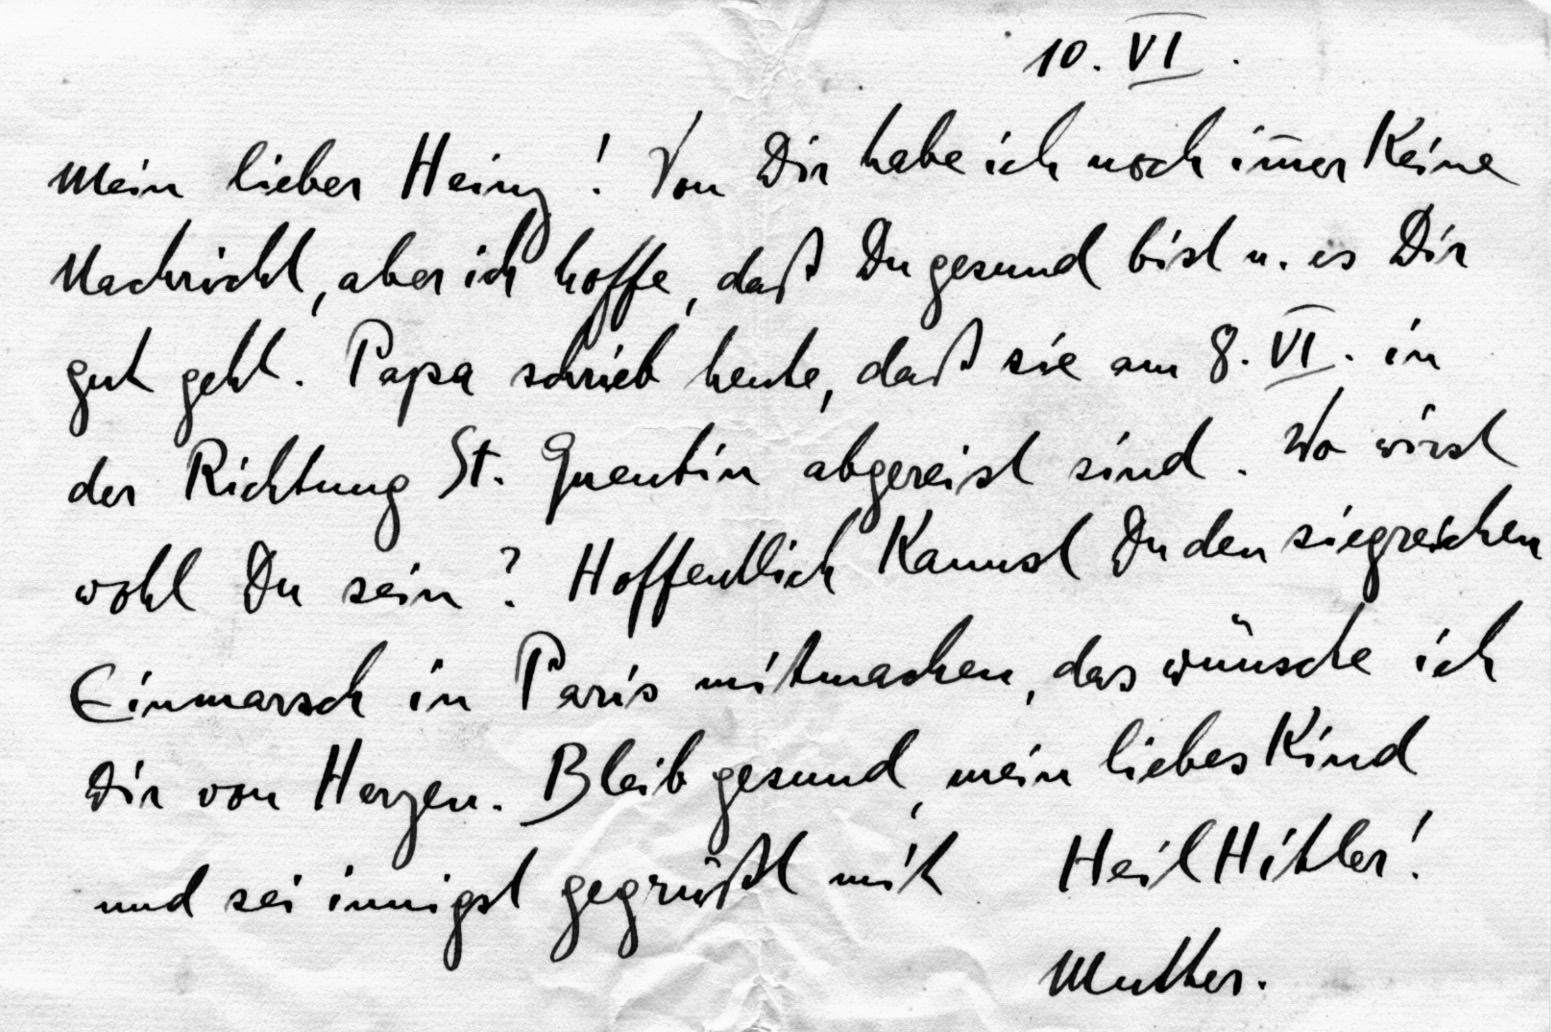 10. VI.
Mein lieber Heinz! Von Dir habe ich noch im̅er Keine
Nachricht, aber ich hoffe, daß Du gesund bist u. es Dir
gut geht. Papa schrieb heute, daß sie am 8. VI. in
der Richtung St. Quentin abgereist sind. Wo wirst
wohl Du sein? Hoffentlich Kannst Du den siegreichen
Einmarsch in Paris mitmachen, das wünsche ich
Dir von Herzen. Bleib gesund, mein liebes Kind
und sei innigst gegrüßt mit Heil Hitler!
Mutter.